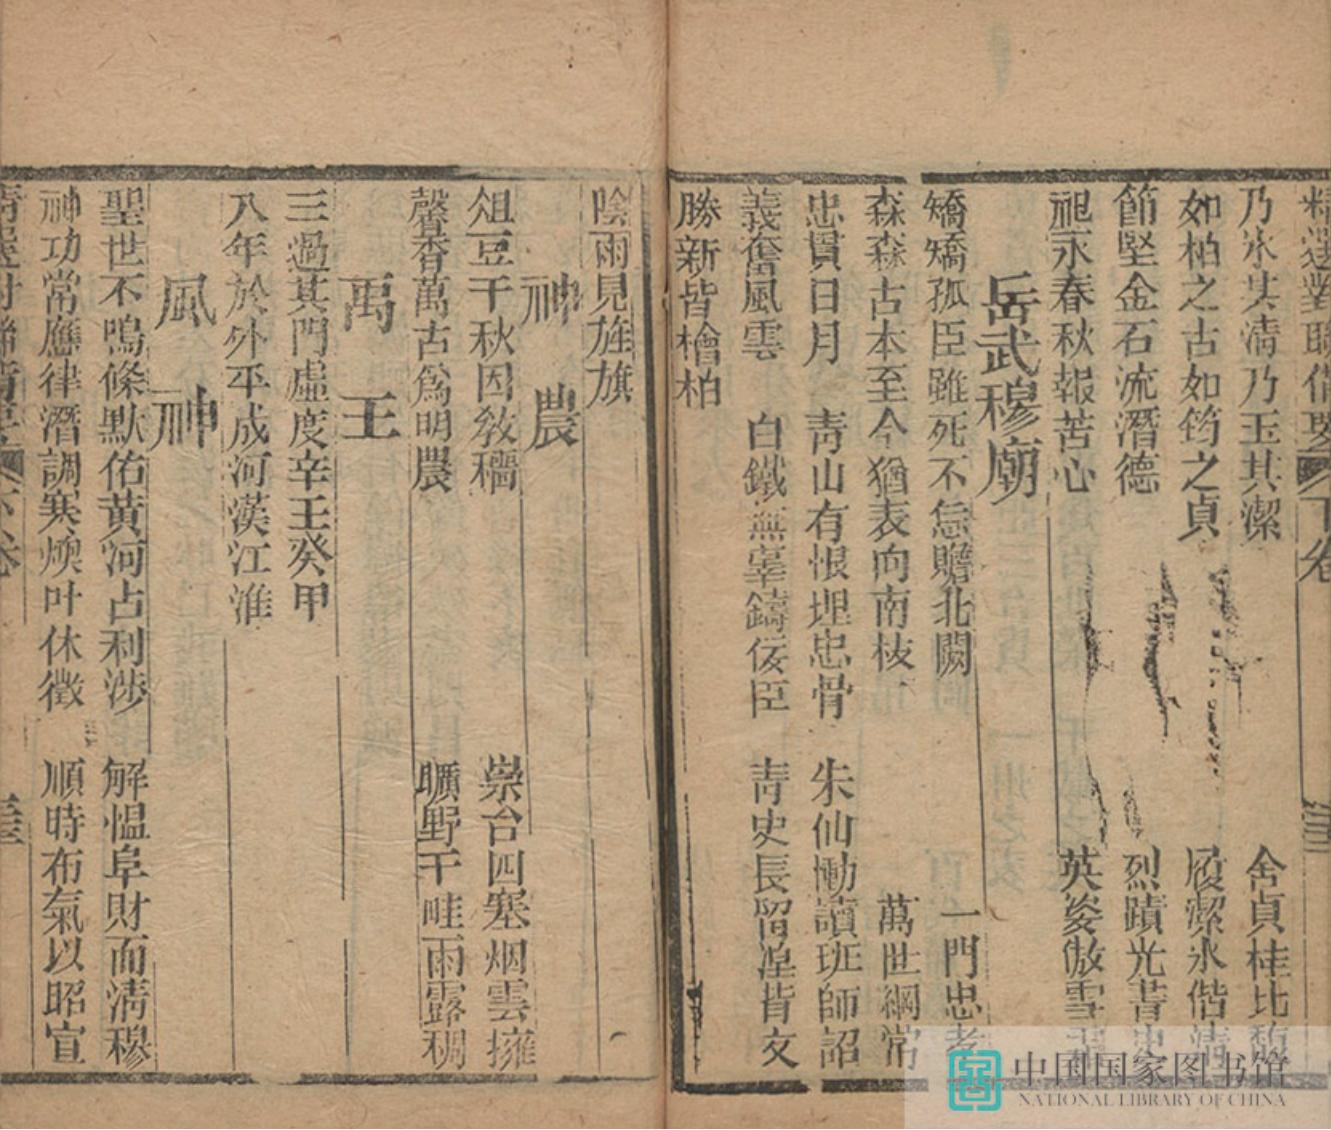 精選對聯備要 下卷
乃氷其清乃玉其潔 舍貞桂比
如柏之古如筠之貞 履潔氷偕清
節堅金石流潛德 烈蹟光書史
祀永春秋報苦心 英姿傲雪
岳武穆廟
矯矯孤臣雖死不怠瞻北闕 一門忠孝
森森古本至今猶表向南枝 萬世綱常
忠貫日月 青山有恨埋忠骨 朱仙慟讀班師詔
義奮風雲 白鐵無辜鑄佞臣 青史長留湼背文
勝新皆檜柏
陰雨見旌旗
神農
俎豆千秋因敎穡 崇台四塞烟雲擁
馨香萬古爲明農 曠野千畦雨露稠
禹王
三過其門虛度辛壬癸甲
八年於外平成河漢江淮
風神
聖世不鳴條默佑黄河占利渉 解愠阜財而清穆
神功常應律潛調寒燠叶休徵 順時布氣以昭宣
中国国家图书馆
NATIONAL LIBRARY OF CHINA